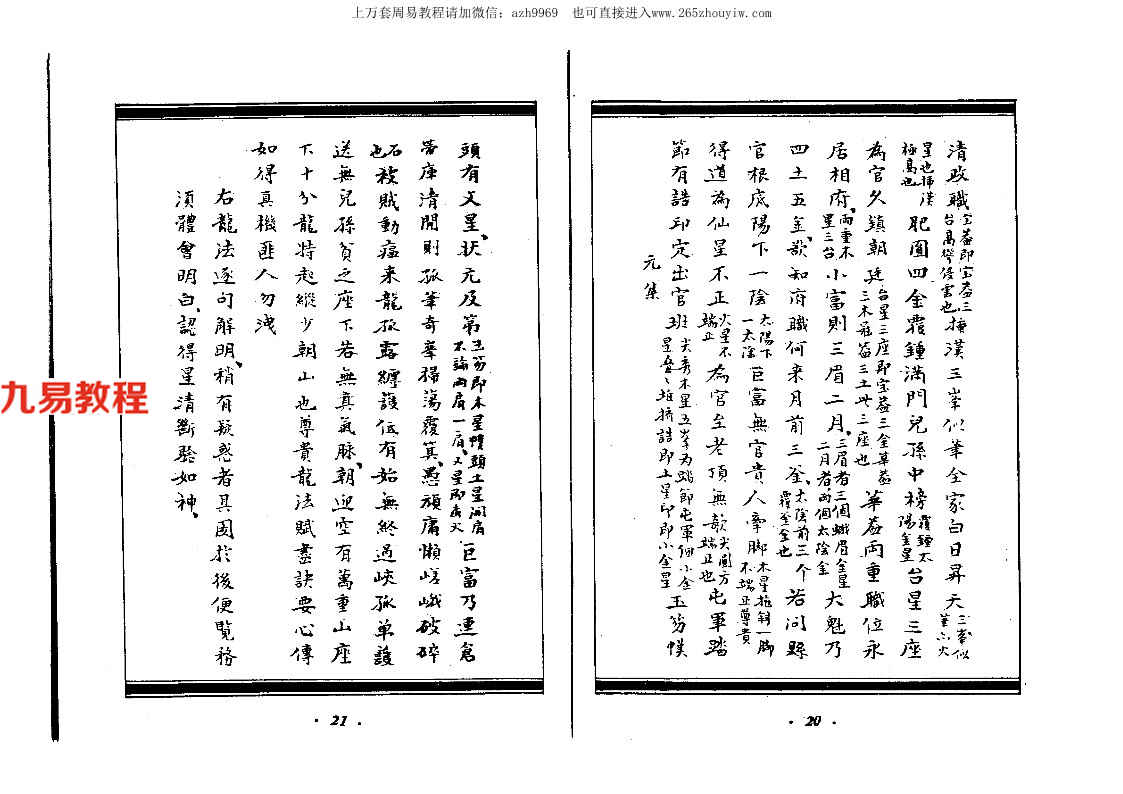 上万套周易教程请加微信：azh9969 也可直接进入www.265zhouyiw.com
清政職宝蓋即宝蓋三台高聳侵雲也插漢三峯似筆全家白日昇天三峯似筆六火
星也插漢極高也肥圓四金覆鍾滿門兒孫中榜覆鍾太陽金星台星三座
為官久鎮朝廷台星三座即宝蓋三金華蓋三木 三土廿三座也華蓋兩重職位永
居相府兩重木星三台小富則三眉二月三眉者三個蛾眉金星二月者兩個太陰金大魁乃
四土五金欲知府職何來月前三釜太陰前三个覆釜金也若問縣
官根底陽下一陰太陽下一太陰巨富無官貴人牽脚木星拖斜一脚不端正尊貴
得道為仙星不正火星不端正為官至老頂無欹尖圓方端正也屯軍踏
節有誥印定出官班尖秀木星五峯為踏節屯軍個小金星叠々堆擠誥即土星印即小金星玉笏幞
元集
· 20 ·
頭有文星狀元及第玉笏即木星幞頭土星開肩不論兩肩一肩文星即房火巨富乃連倉
帶庫清閒則孤峯奇峯掃蕩覆箕愚頑庸懶嵯峨破碎
石也被賊動瘟来龍孤露纏護低有始無終過峽孤单護
送無兒孫貧之座下若無真氣脉朝迎空有萬重山座
下十分龍特起縱少朝山也尊貴龍法賦盡訣要心傳
如得真機匪人勿洩
右龍法逐句解明稍有疑惑者具図於後便覧務
須體會明白認得星清斷驗如神
· 21 ·
九易教程